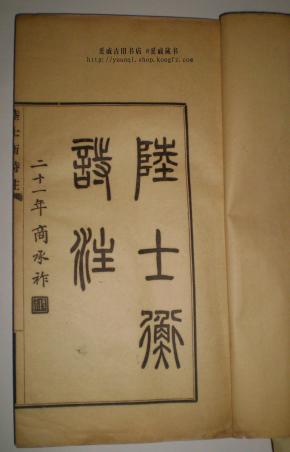 爱戚古旧书店 #爱戚藏书
http://youaqi.shop.kongfz.com/
陸士衡
詩注
二十一年商承祚